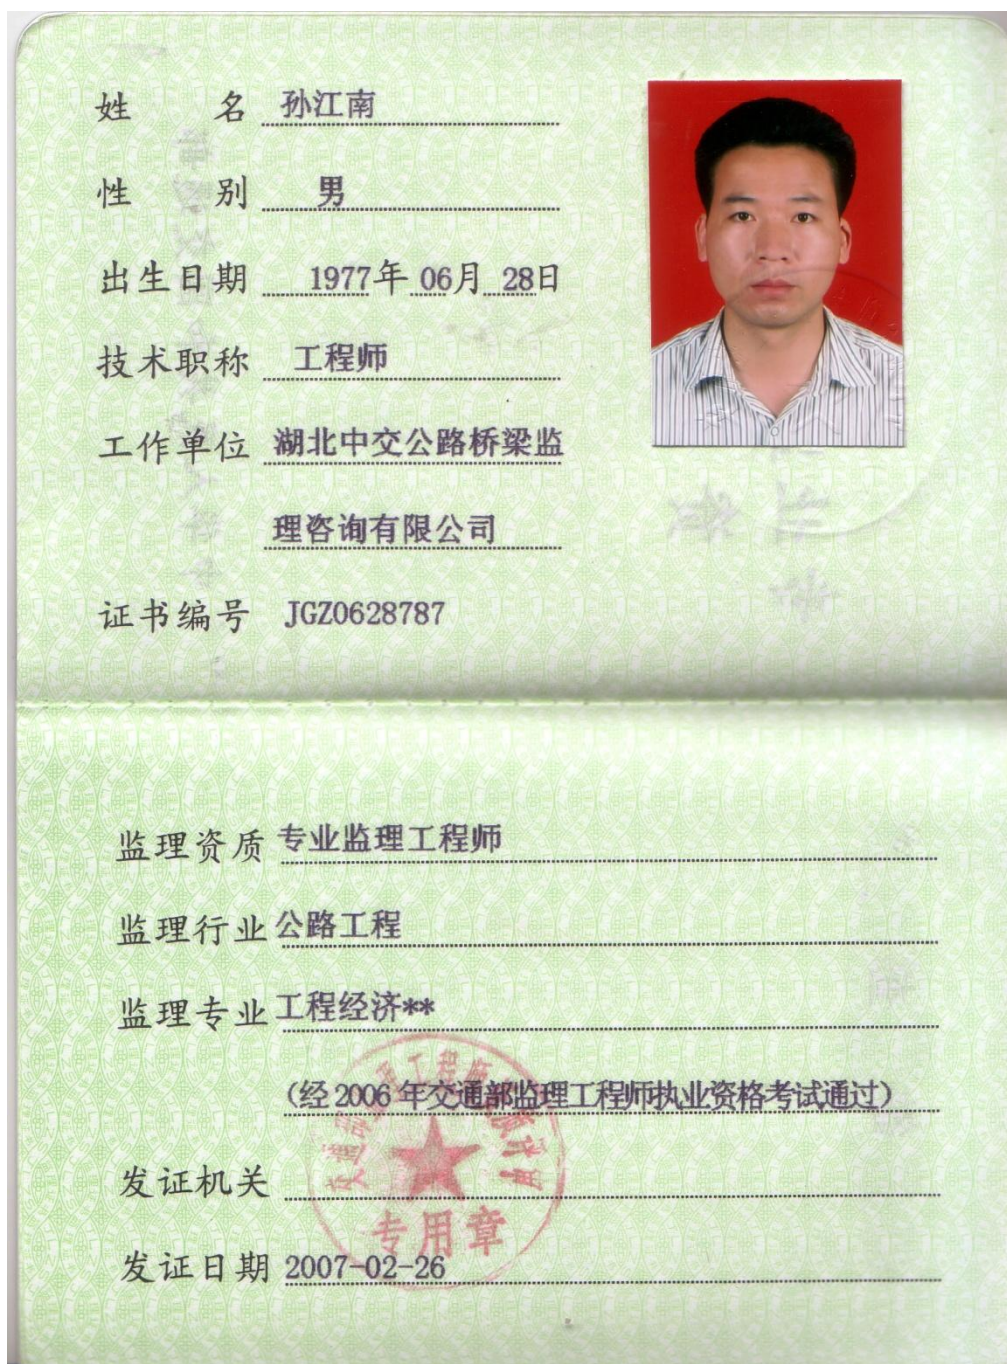 姓 名 孙江南
性 别 男
出生日期 1977年 06月 28日
技术职称 工程师
工作单位 湖北中交公路桥梁监
理咨询有限公司
证书编号 JGZ0628787
监理资质 专业监理工程师
监理行业 公路工程
监理专业 工程经济**
(经 2006 年交通部监理工程师执业资格考试通过)
发证机关
专用章
发证日期 2007-02-26